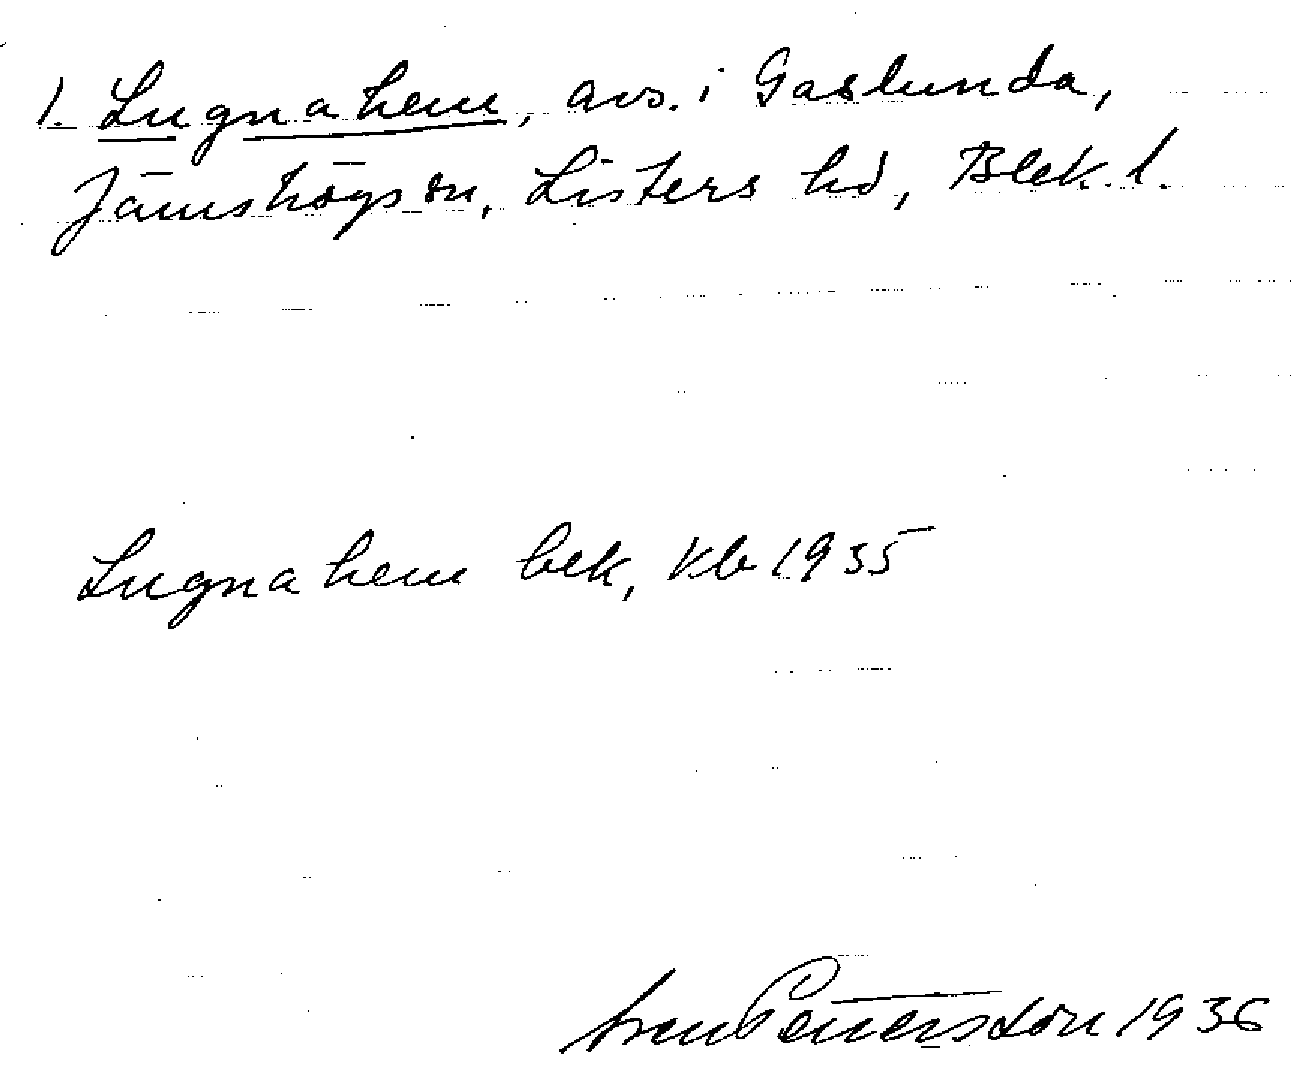 1. Lugnahem, avs. i Gaslunda,
Jämshögs sn, Listers hd, Blek. l.
Lugnahem bek, Kb 1935
Sven Pettersson 1936